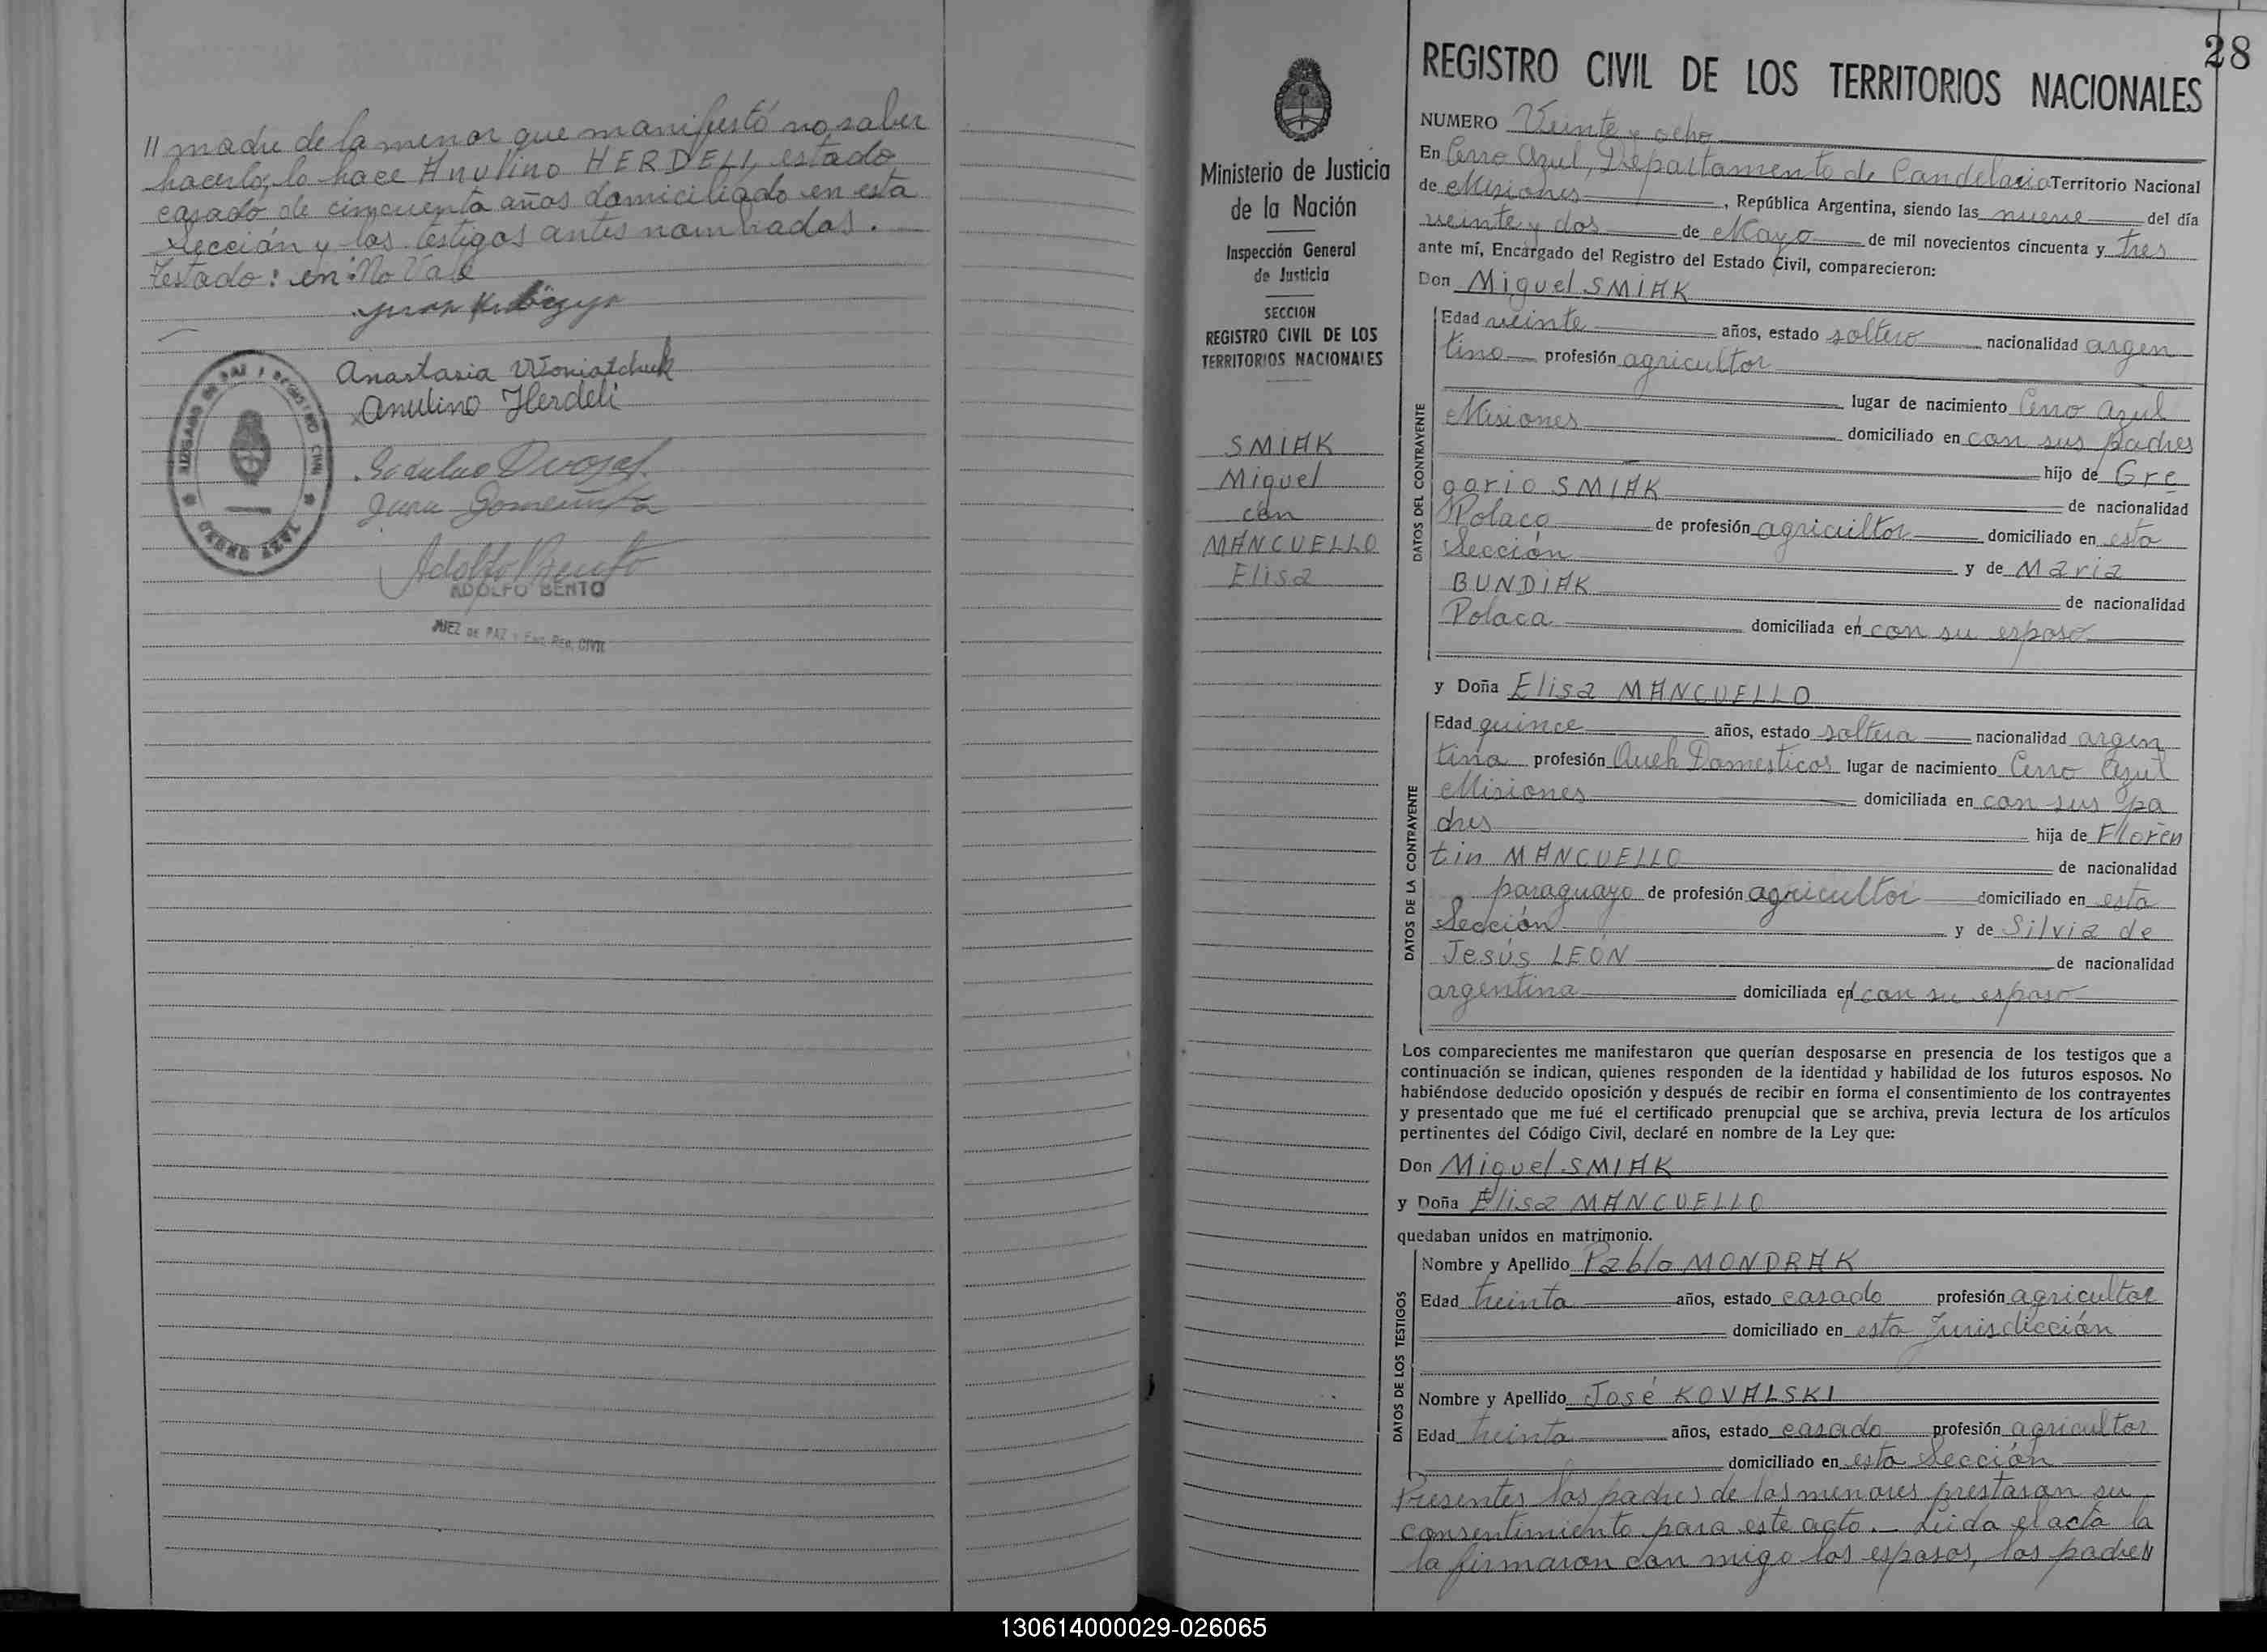 // madre de la menor que manifestó no saber
hacerlo, lo hace Anulino HERDELI, estado
casado de cincuenta años domiciliado en esta
Sección y los testigos antes nombrados.
Testado: en: No Vale
Juan
Anastasia Woniatchuk
Anulino Herdeli
JUZGADO DE PAZ Y REGISTRO CIVIL
CERRO AZUL
Adolfo Bento
ADOLFO BENTO
JUEZ DE PAZ y Enc. Reg. CIVIL
28
Ministerio de Justicia
de la Nación
Inspección General
de Justicia
SECCION
REGISTRO CIVIL DE LOS
TERRITORIOS NACIONALES
SMIAK
Miguel
con
MANCUELLO
Elisa
REGISTRO CIVIL DE LOS TERRITORIOS NACIONALES
NUMERO Veinte y ocho
En Cerro Azul, Departamento de Candelaria Territorio Nacional
de Misiones, República Argentina, siendo las nueve del día
veinte y dos de Mayo de mil novecientos cincuenta y tres
ante mí, Encargado del Registro del Estado Civil, comparecieron:
Don Miguel SMIAK
DATOS DEL CONTRAYENTE
Edad veinte años, estado soltero nacionalidad argen
tino profesión agricultor
lugar de nacimiento Cerro Azul
Misiones domiciliado en con sus padres
hijo de Gre
gorio SMIAK de nacionalidad
Polaco de profesión agricultor domiciliado en esta
Sección y de Maria
BUNDIAK de nacionalidad
Polaca domiciliada en con su esposo
y Doña Elisa MANCUELLO
DATOS DE LA CONTRAYENTE
Edad quince años, estado soltera nacionalidad argen
tina profesión Queh Domesticos lugar de nacimiento Cerro Azul
Misiones domiciliada en con sus pa
dres hija de Floren
tin MANCUELLO de nacionalidad
paraguayo de profesión agricultor domiciliado en esta
Sección y de Silvia de
Jesús LEÓN de nacionalidad
argentina domiciliada en con su esposo
Los comparecientes me manifestaron que querían desposarse en presencia de los testigos que a
continuación se indican, quienes responden de la identidad y habilidad de los futuros esposos. No
habiéndose deducido oposición y después de recibir en forma el consentimiento de los contrayentes
y presentado que me fué el certificado prenupcial que se archiva, previa lectura de los artículos
pertinentes del Código Civil, declaré en nombre de la Ley que:
Don Miguel SMIAK
y Doña Elisa MANCUELLO
quedaban unidos en matrimonio.
DATOS DE LOS TESTIGOS
Nombre y Apellido Pablo MONDRAK
Edad treinta años, estado casado profesión agricultor
domiciliado en esta Jurisdicción
Nombre y Apellido José KOVALSKI
Edad treinta años, estado casado profesión agricultor
domiciliado en esta Sección
Presentes los padres de los menores prestaron su
consentimiento para este acto. Leida el acta la
la firmaron con migo los esposos, los padres
130614000029-026065